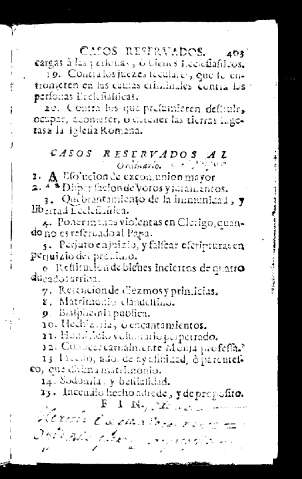 CASOS RESERVADOS. 403
cargas à las personas, ò bienes Ecclesiasticos.
19. Contra los juezes seculares, que se en-
tromeren en las causas criminales contra las
personas Ecclesiasticas.
20. Contra los que presumieren destruir,
ocupar, acometer, ò detener las tierras suge-
tas à la Iglesia Romana.
CASOS RESERVADOS AL
Ordinario.
1. Absolucion de excomunion mayor
2. Dispensacion de Votos y juramentos.
3. Quebrantamiento de la immunidad, y
libertad Ecclesiastica.
4. Poner manos violentas en Clerigo, quan-
do no es reservado al Papa.
5. Perjuro en juizio, y falsear escripturas en
perjuizio del proximo.
6 Restitucion de bienes inciertos de quatro
ducados arriba.
7. Retencion de diezmos y primicias.
8. Matrimonio clandestino.
9 Blasphemia publica.
10. Hechizerias, ò encantamientos.
11. Homicidio voluntario perpetrado.
12. Conocer carnalmente Monja professa.
13 de afinidad, ò parentes-
co, que dirima matrimonio.
14. Sodomia, y bestialidad.
15. Incendio hecho adrede, y de proposito.
FIN.